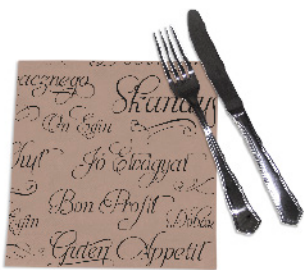 acznego
Skanduś
On Egin
Jó Étvágyat
Bon Profit
Egin
Guten Appetit